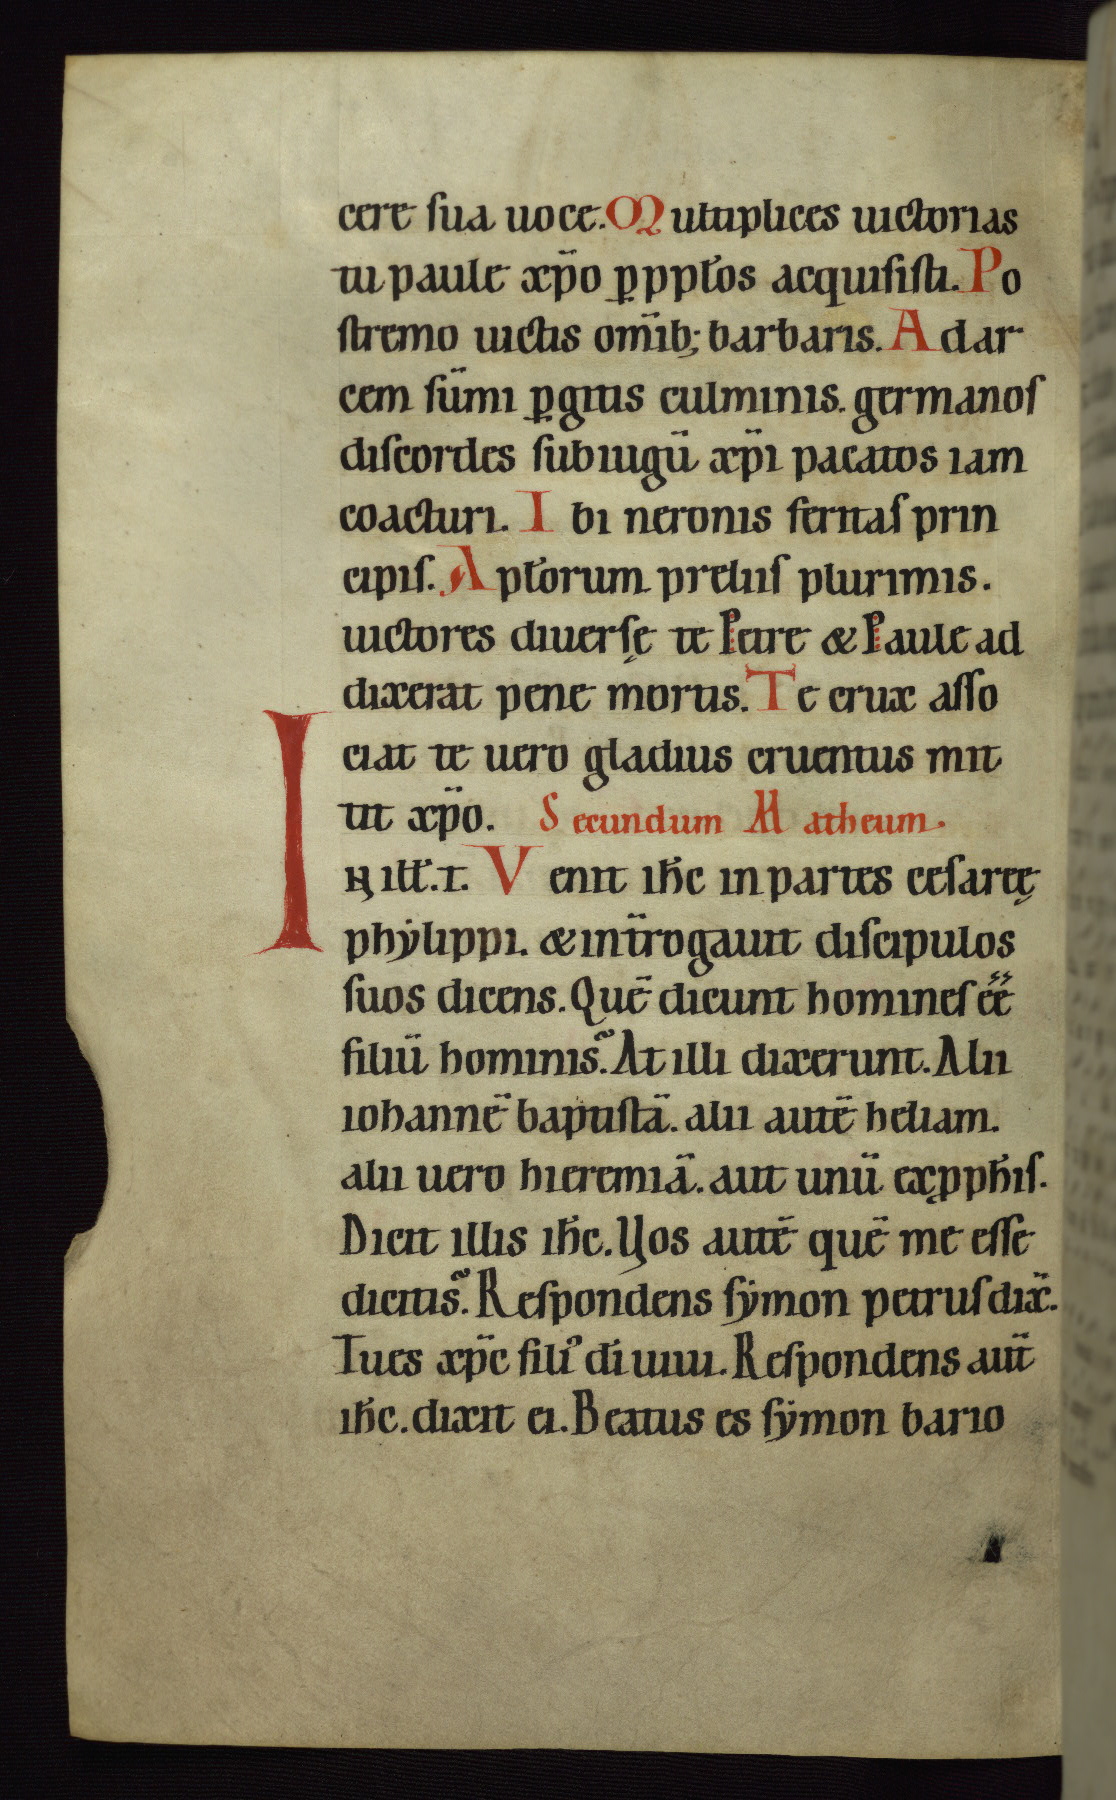 cere sua uoce. Multiplices uictorias
tu paule xp̄o ꝑ ppl̄os acquisisti. Po
stremo uictis om̄ib; barbaris. Ad ar
cem sūmi ꝑgitis culminis. germanos
discordes sub iugū xp̄i pacatos iam
coacturi. Ibi neronis feritas prin
cipis. Apl̄orum preliis plurimis.
uictores diuersę te Petre & Paule ad
dixerat pene mortis. Te crux asso
ciat te uero gladius cruentus mit
tit xp̄o. Secundum Matheum.
IN ill̄. t̄. Venit ih̄c in partes cesareę
phẏlippi. & int̄rogauit discipulos
suos dicens. Quē dicunt homines ēē
filiū hominis. At illi dixerunt. Alii
iohannē baptistā. alii autē heliam.
alii uero hieremiā. aut unū ex pph̄is.
Dicit illis ih̄c. Uos autē quē me esse
dicitis. Respondens sẏmon petrus dix̄.
Tu es xp̄c fili᾽ dī uiui. Respondens aut̄
ih̄c. dixit ei. Beatus es sẏmon bario